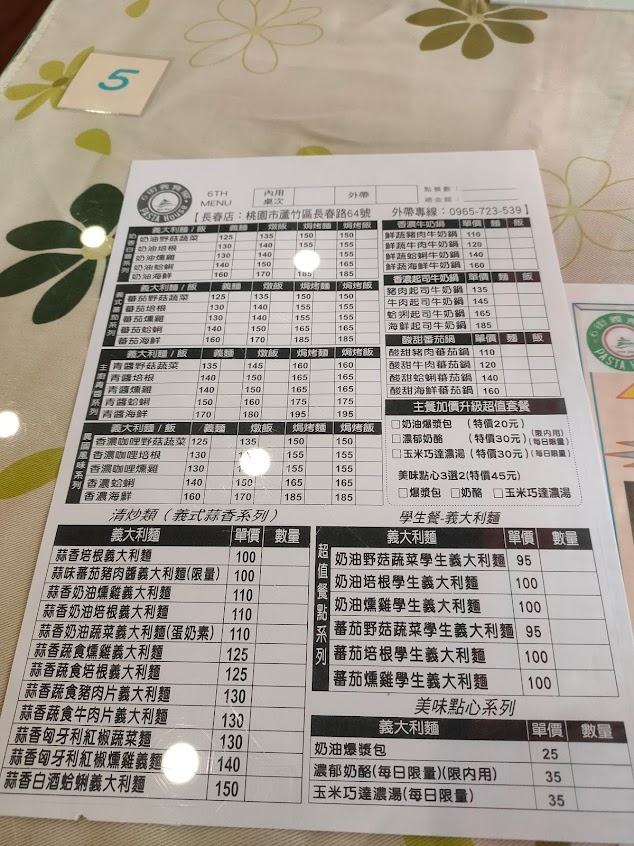 5
六街義食屋
PASTA HOUSE
6TH
MENU
內用
桌次
外帶
點餐數：
總金額：
【長春店：桃園市蘆竹區長春路64號 外帶專線：0965-723-539】
義大利麵/飯 義麵 燉飯 焗烤麵 焗烤飯
奶油野菇蔬菜 125 135 150 150
奶油培根 130 140 155 155
奶油燻雞 130 140 155 155
奶油蛤蜊 140 150 165 165
奶油海鮮 160 170 185 185
義大利麵/飯 義麵 燉飯 焗烤麵 焗烤飯
番茄野菇蔬菜 125 135 150 150
番茄培根 130 140 155 155
番茄燻雞 130 140 155 155
番茄蛤蜊 140 150 165 165
番茄海鮮 160 170 185 185
義大利麵/飯 義麵 燉飯 焗烤麵 焗烤飯
青醬野菇蔬菜 135 145 160 160
青醬培根 140 150 165 165
青醬燻雞 140 150 165 165
青醬蛤蜊 150 160 175 175
青醬海鮮 170 180 195 195
義大利麵/飯 義麵 燉飯 焗烤麵 焗烤飯
異國風味系列
香濃咖哩野菇蔬菜 125 135 150 150
香濃咖哩培根 130 155 155
香濃咖哩燻雞 130 155 155
香濃蛤蜊 140 150 165 165
香濃海鮮 160 170 185 185
香濃牛奶鍋 單價 麵 飯
鮮蔬豬肉牛奶鍋 110
鮮蔬牛肉牛奶鍋 120
鮮蔬蛤蜊牛奶鍋 130
鮮蔬海鮮牛奶鍋 160
香濃起司牛奶鍋 單價 麵 飯
豬肉起司牛奶鍋 135
牛肉起司牛奶鍋 145
蛤蜊起司牛奶鍋 165
海鮮起司牛奶鍋 185
酸甜番茄鍋 單價 麵 飯
酸甜豬肉番茄鍋 110
酸甜牛肉番茄鍋 120
酸甜蛤蜊番茄鍋 140
酸甜海鮮番茄鍋 160
主餐加價升級超值套餐
□奶油爆漿包 (特價20元)
□濃郁奶酪 (特價30元) (限內用)(每日限量)
□玉米巧達濃湯 (特價30元) (每日限量)
美味點心3選2(特價45元)
□爆漿包 □奶酪 □玉米巧達濃湯
清炒類(義式蒜香系列)
義大利麵 單價 數量
蒜香培根義大利麵 100
蒜味蕃茄豬肉醬義大利麵(限量) 100
蒜香奶油燻雞義大利麵 110
蒜香奶油培根義大利麵 110
蒜香奶油蔬菜義大利麵(蛋奶素) 110
蒜香蔬食燻雞義大利麵 125
蒜香蔬食培根義大利麵 125
蒜香蔬食豬肉片義大利麵 130
蒜香蔬食牛肉片義大利麵 130
蒜香匈牙利紅椒蔬菜麵 130
蒜香匈牙利紅椒燻雞義大利麵 140
蒜香白酒蛤蜊義大利麵 150
學生餐-義大利麵
義大利麵 單價 數量
超值餐點系列
奶油野菇蔬菜學生義大利麵 95
奶油培根學生義大利麵 100
奶油燻雞學生義大利麵 100
蕃茄野菇蔬菜學生義大利麵 95
蕃茄培根學生義大利麵 100
蕃茄燻雞學生義大利麵 100
美味點心系列
義大利麵 單價 數量
奶油爆漿包 25
濃郁奶酪(每日限量)(限內用) 35
玉米巧達濃湯(每日限量) 35